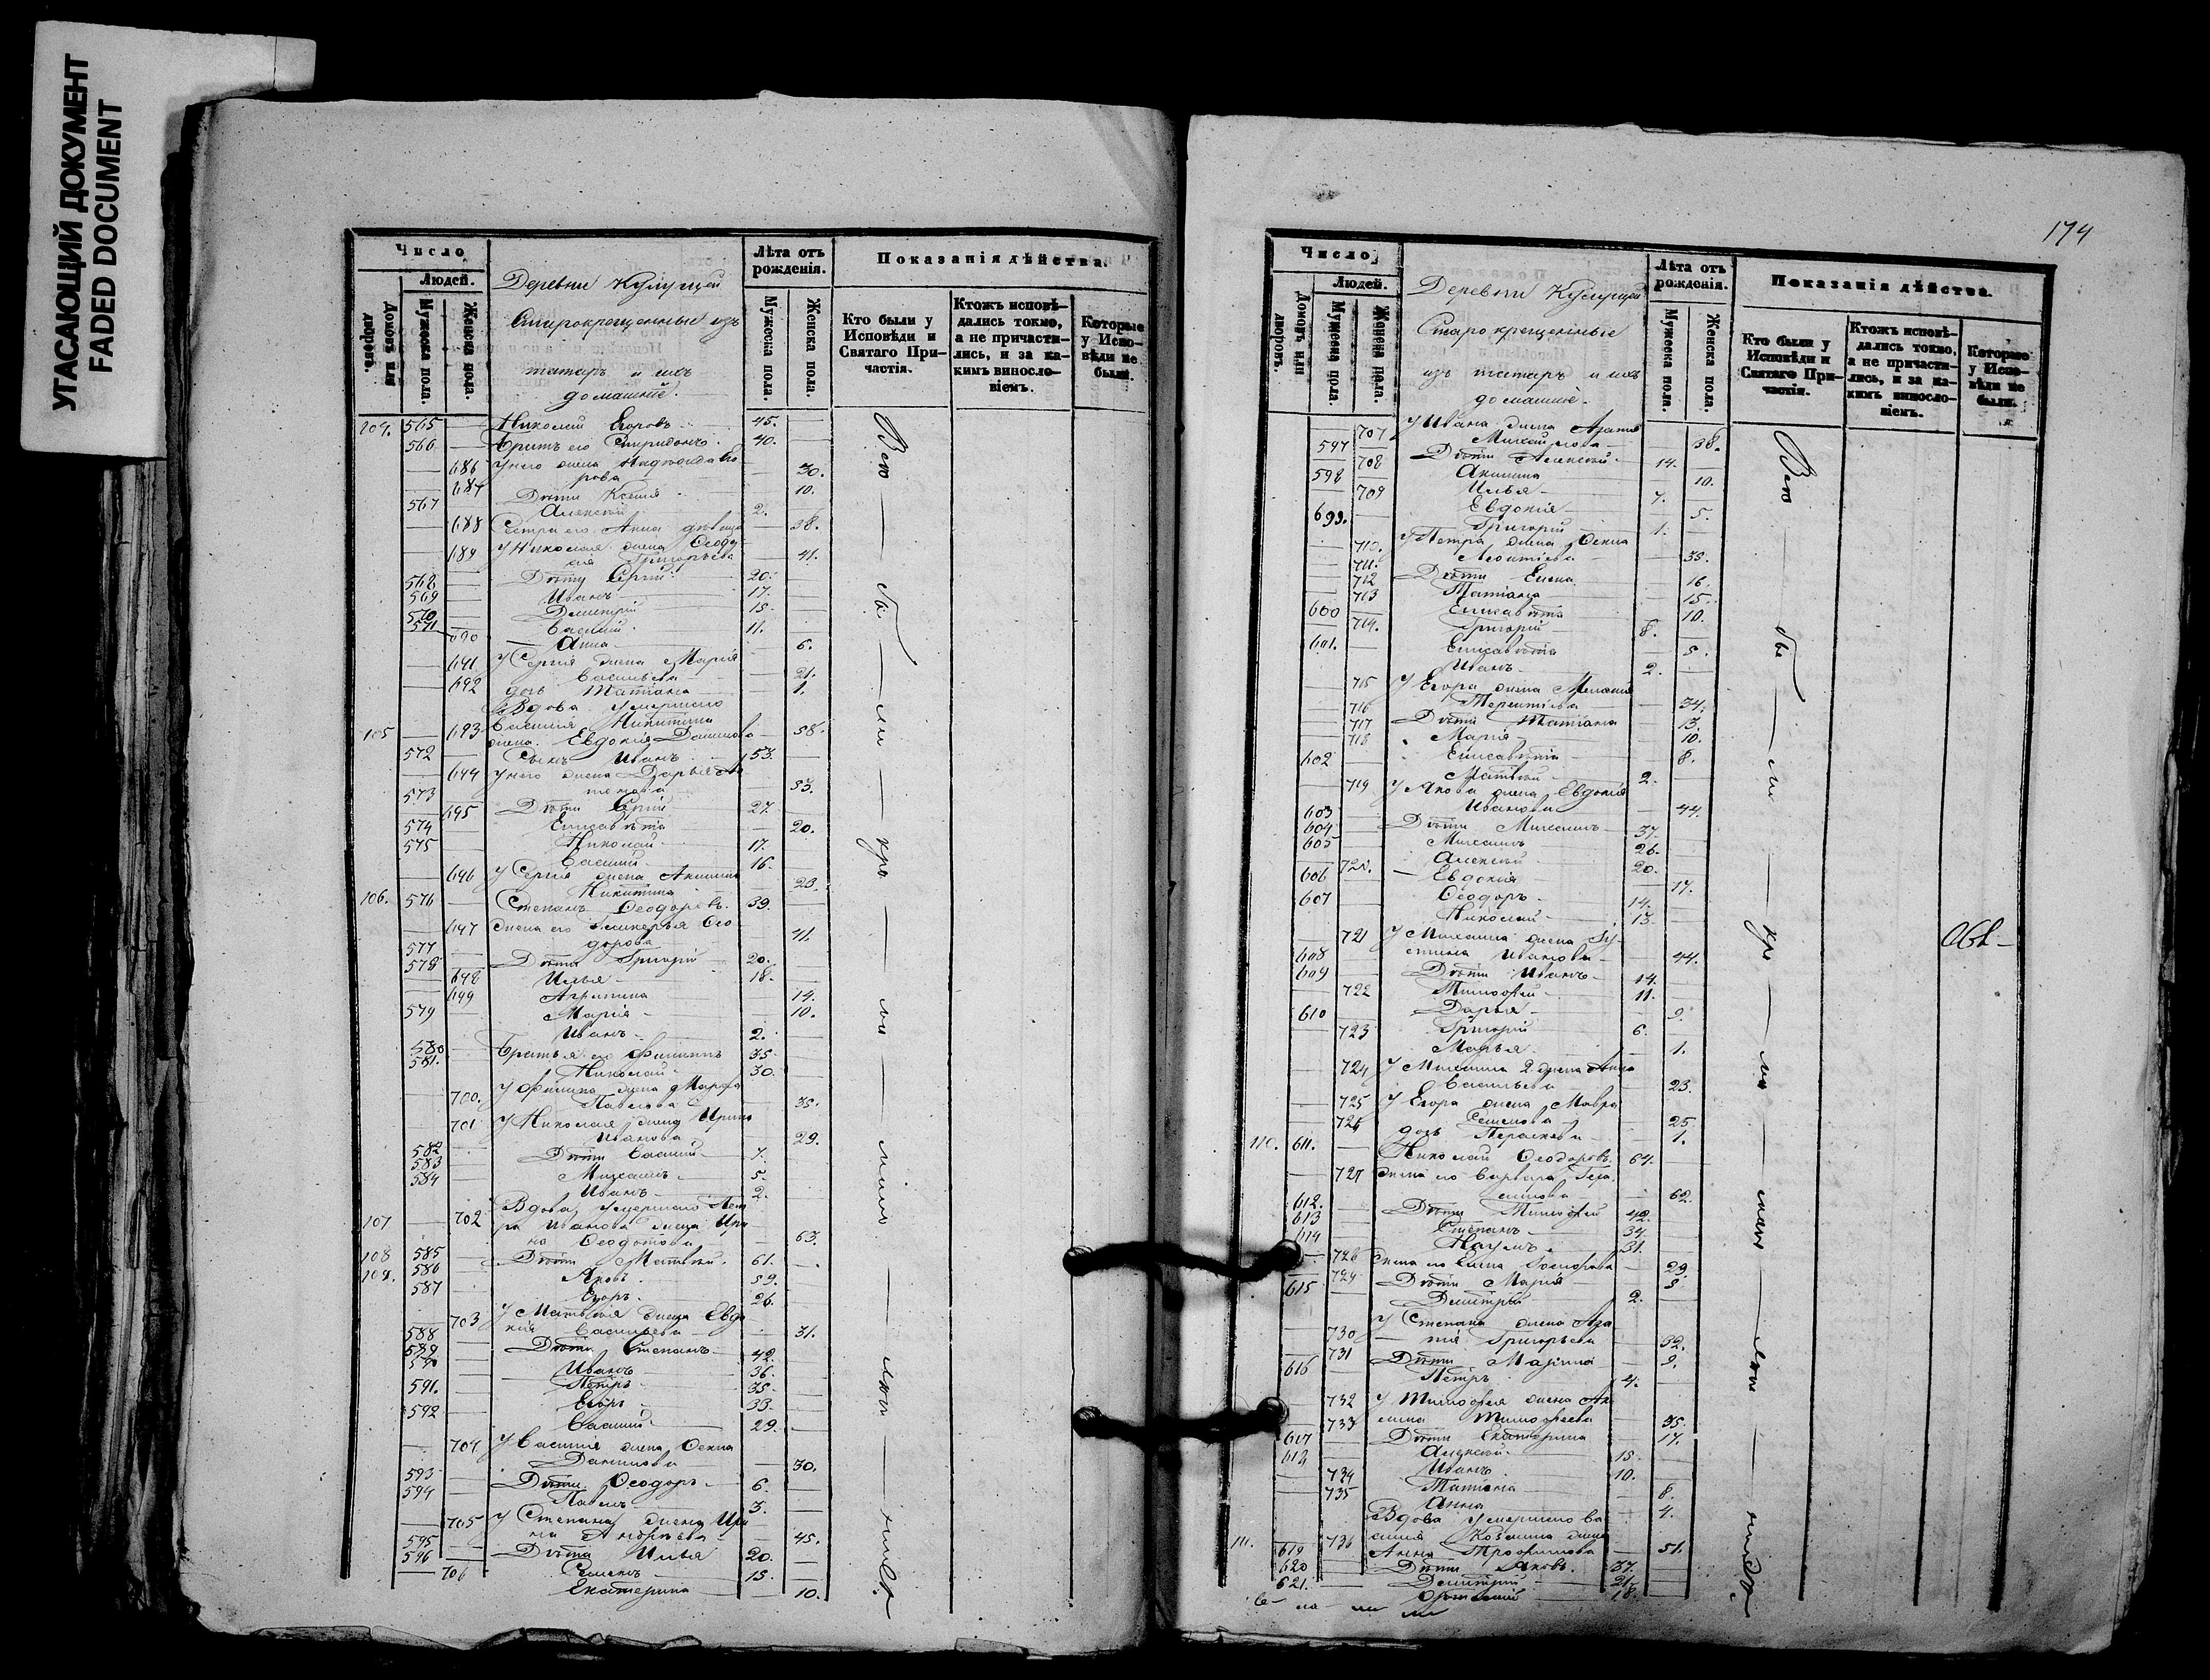 УГАСАЮЩИЙ ДОКУМЕНТ
FADED DOCUMENT
Число
Людей.
Домовъ или дворовъ.
Мужеска пола.
Женска пола.
Деревни Кулущей
Старокрещенные изъ
татаръ и ихъ
домашніе.
Лѣта отъ рожденія.
Мужеска пола.
Женска пола.
Показанія дѣйства.
Кто были у Исповѣди и Святаго Причастія.
Ктожъ исповѣдались токмо, а не причастились, и за какимъ винословіемъ.
Которые у Исповѣди не были.
104. 565 Николай Егоровъ 45.
566 Братъ его Спиридонъ 40.
686 У него жена Надежда Его
рова 30.
687 Дѣти Ксенія 10.
567 Алексѣй 2.
688 Сестра его Анна дѣвица 38.
689 У Николая жена Ѳеодо
сія Григорьева 41.
568 Дѣти Сергій 20.
569 Иванъ 17.
570 Димитрій 15.
571 Василій 11.
690 Анна 6.
691 У Сергія жена Марія
Васильева 21.
692 дочь Татіана 1.
Вдова умершаго
105 693 Василія Никитина
жена Евдокія Данилова 58.
572 Сынъ Иванъ 53.
694 У него жена Дарья
53.
573 Дѣти Сергій 27.
695 Елисавета 20.
574 Николай 17.
575 Василій 16.
696 У Сергія жена Акилина
Никитина 23.
106. 576 Степанъ Ѳеодоровъ 39.
697 Жена его Гликерья Ѳео
дорова 41.
577 Дѣти Григорій 20.
578 Илья 18.
698 Агрипина 14.
699 Марія 10.
579 Иванъ 2.
580 Братья его Филиппъ 35
581. Николай 30.
700. У Филипа жена Марфа
Павлова 35.
701 У Николая жена Ирина
Иванова 29.
582 Дѣти Василій 7.
583 Михаилъ 5.
584 Иванъ 2.
Вдова умершаго Пет
107 702 ра Иванова жена Ири
на Ѳеодотова 63.
108 585 Дѣти Матвѣй 61.
109. 586 Яковъ 59.
587 Егоръ 26.
703 У Матвѣя жена Евдо
кія Васильева 31.
588 Дѣти Степанъ 42.
589 Иванъ 36.
590 Петръ 35
591. Егоръ 33.
592 Василій 29.
704 У Василія жена Ксенія
Данилова 30.
593 Дѣти Ѳеодоръ 6.
594 Павелъ 3.
705 У Степана жена Ири
на Андреева 45.
595 Дѣти Илья 20.
596 Семенъ 15.
706 Екатерина 10.
Всѣ бы ли
174
Число
Людей.
Домовъ или дворовъ.
Мужеска пола.
Женска пола.
Деревни Кулущей
Старокрещенные
изъ татаръ и ихъ
домашніе.
Лѣта отъ рожденія.
Мужеска пола.
Женска пола.
Показанія дѣйства.
Кто были у Исповѣди и Святаго Причастія.
Ктожъ исповѣдались токмо, а не причастились, и за какимъ винословіемъ.
Которые у Исповѣди не были.
707 У Ивана жена Агапія
Михайлова 38.
597 Дѣти Алексѣй 14.
708 Акилина 10.
598 Илья 7.
709 Евдокія 5.
699. Григорій 1.
710. У Петра жена Ксенія
Леонтіева 35.
711. Дѣти Елена 16.
712 Татіана 15.
713 Елисавета 10.
600 Григорій 8.
714. Елисавета 5.
601. Иванъ 2.
715 У Егора жена Меланія
Терентіева 34.
716 Дѣти Татіана 13.
717 Марія 10.
718 Елисавета 8.
602 Матвѣй 2.
719 У Якова жена Евдокія
Иванова 44.
603 Дѣти Михаилъ 37.
604 Михаилъ 26.
605 Алексѣй 20.
720. Евдокія 17.
606 Ѳеодоръ 14.
607 Николай 13.
721 У Михаила жена Іу
стина Иванова 44.
608 Дѣти Иванъ 14.
609 Тимофей 11.
722 Дарья 9.
610 Григорій 6.
723 Марья 1.
724 У Михаила 2 жена Анна
Васильева 23.
725 У Егора жена Мавра
Семенова 25.
726 дочь Параскева 1.
110. 611. Николай Ѳеодоровъ 64.
727 Жена его Варвара Гера
симова 62.
612. Дѣти Тимофей 42.
613 Степанъ 34.
614 Наумъ 31.
728 Жена его Елена 29.
729 Дѣти Марія 5.
615 Димитрій 2.
У Степана жена Ага
730 пія Григорьева 32.
731 Дѣти Марина 9.
616 Петръ 4.
732 У Тимофея жена Аки
лина Тимофеева 35.
733 Дѣти Екатерина 17.
617 Алексѣй 15.
618 Иванъ 10.
734 Татіана 8.
735 Анна 4.
Вдова умершаго Ва
силія Козмина жена
111. 736 Анна Трофимова 51.
619 Дѣти Яковъ 37.
620 Димитрій 21.
621. 18.
Всѣ бы ли